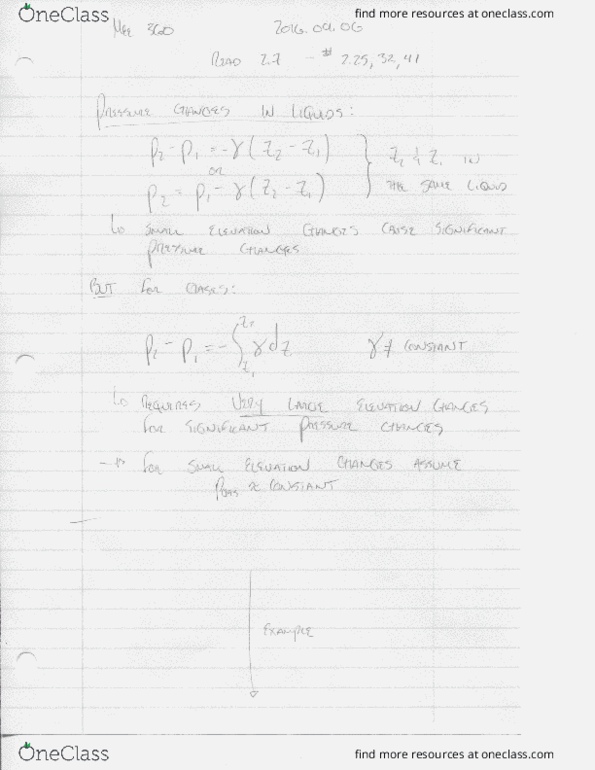 OneClass
find more resources at oneclass.com
MEE 360
2016.09.06
READ 2.7 - # 2.25, 32, 41
PRESSURE CHANGES IN LIQUIDS:
p₂ - p₁ = -γ(z₂ - z₁)
OR
p₂ = p₁ - γ(z₂ - z₁)
z₂ & z₁ IN
THE SAME LIQUID
↳ SMALL ELEVATION CHANGES CAUSE SIGNIFICANT
PRESSURE CHANGES
BUT FOR GASES:
p₂ - p₁ = -∫z₁z₂ γ dz
γ ≠ CONSTANT
↳ REQUIRES VERY LARGE ELEVATION CHANGES
FOR SIGNIFICANT PRESSURE CHANGES
→ FOR SMALL ELEVATION CHANGES ASSUME
PGAS ≈ CONSTANT
EXAMPLE
OneClass
find more resources at oneclass.com